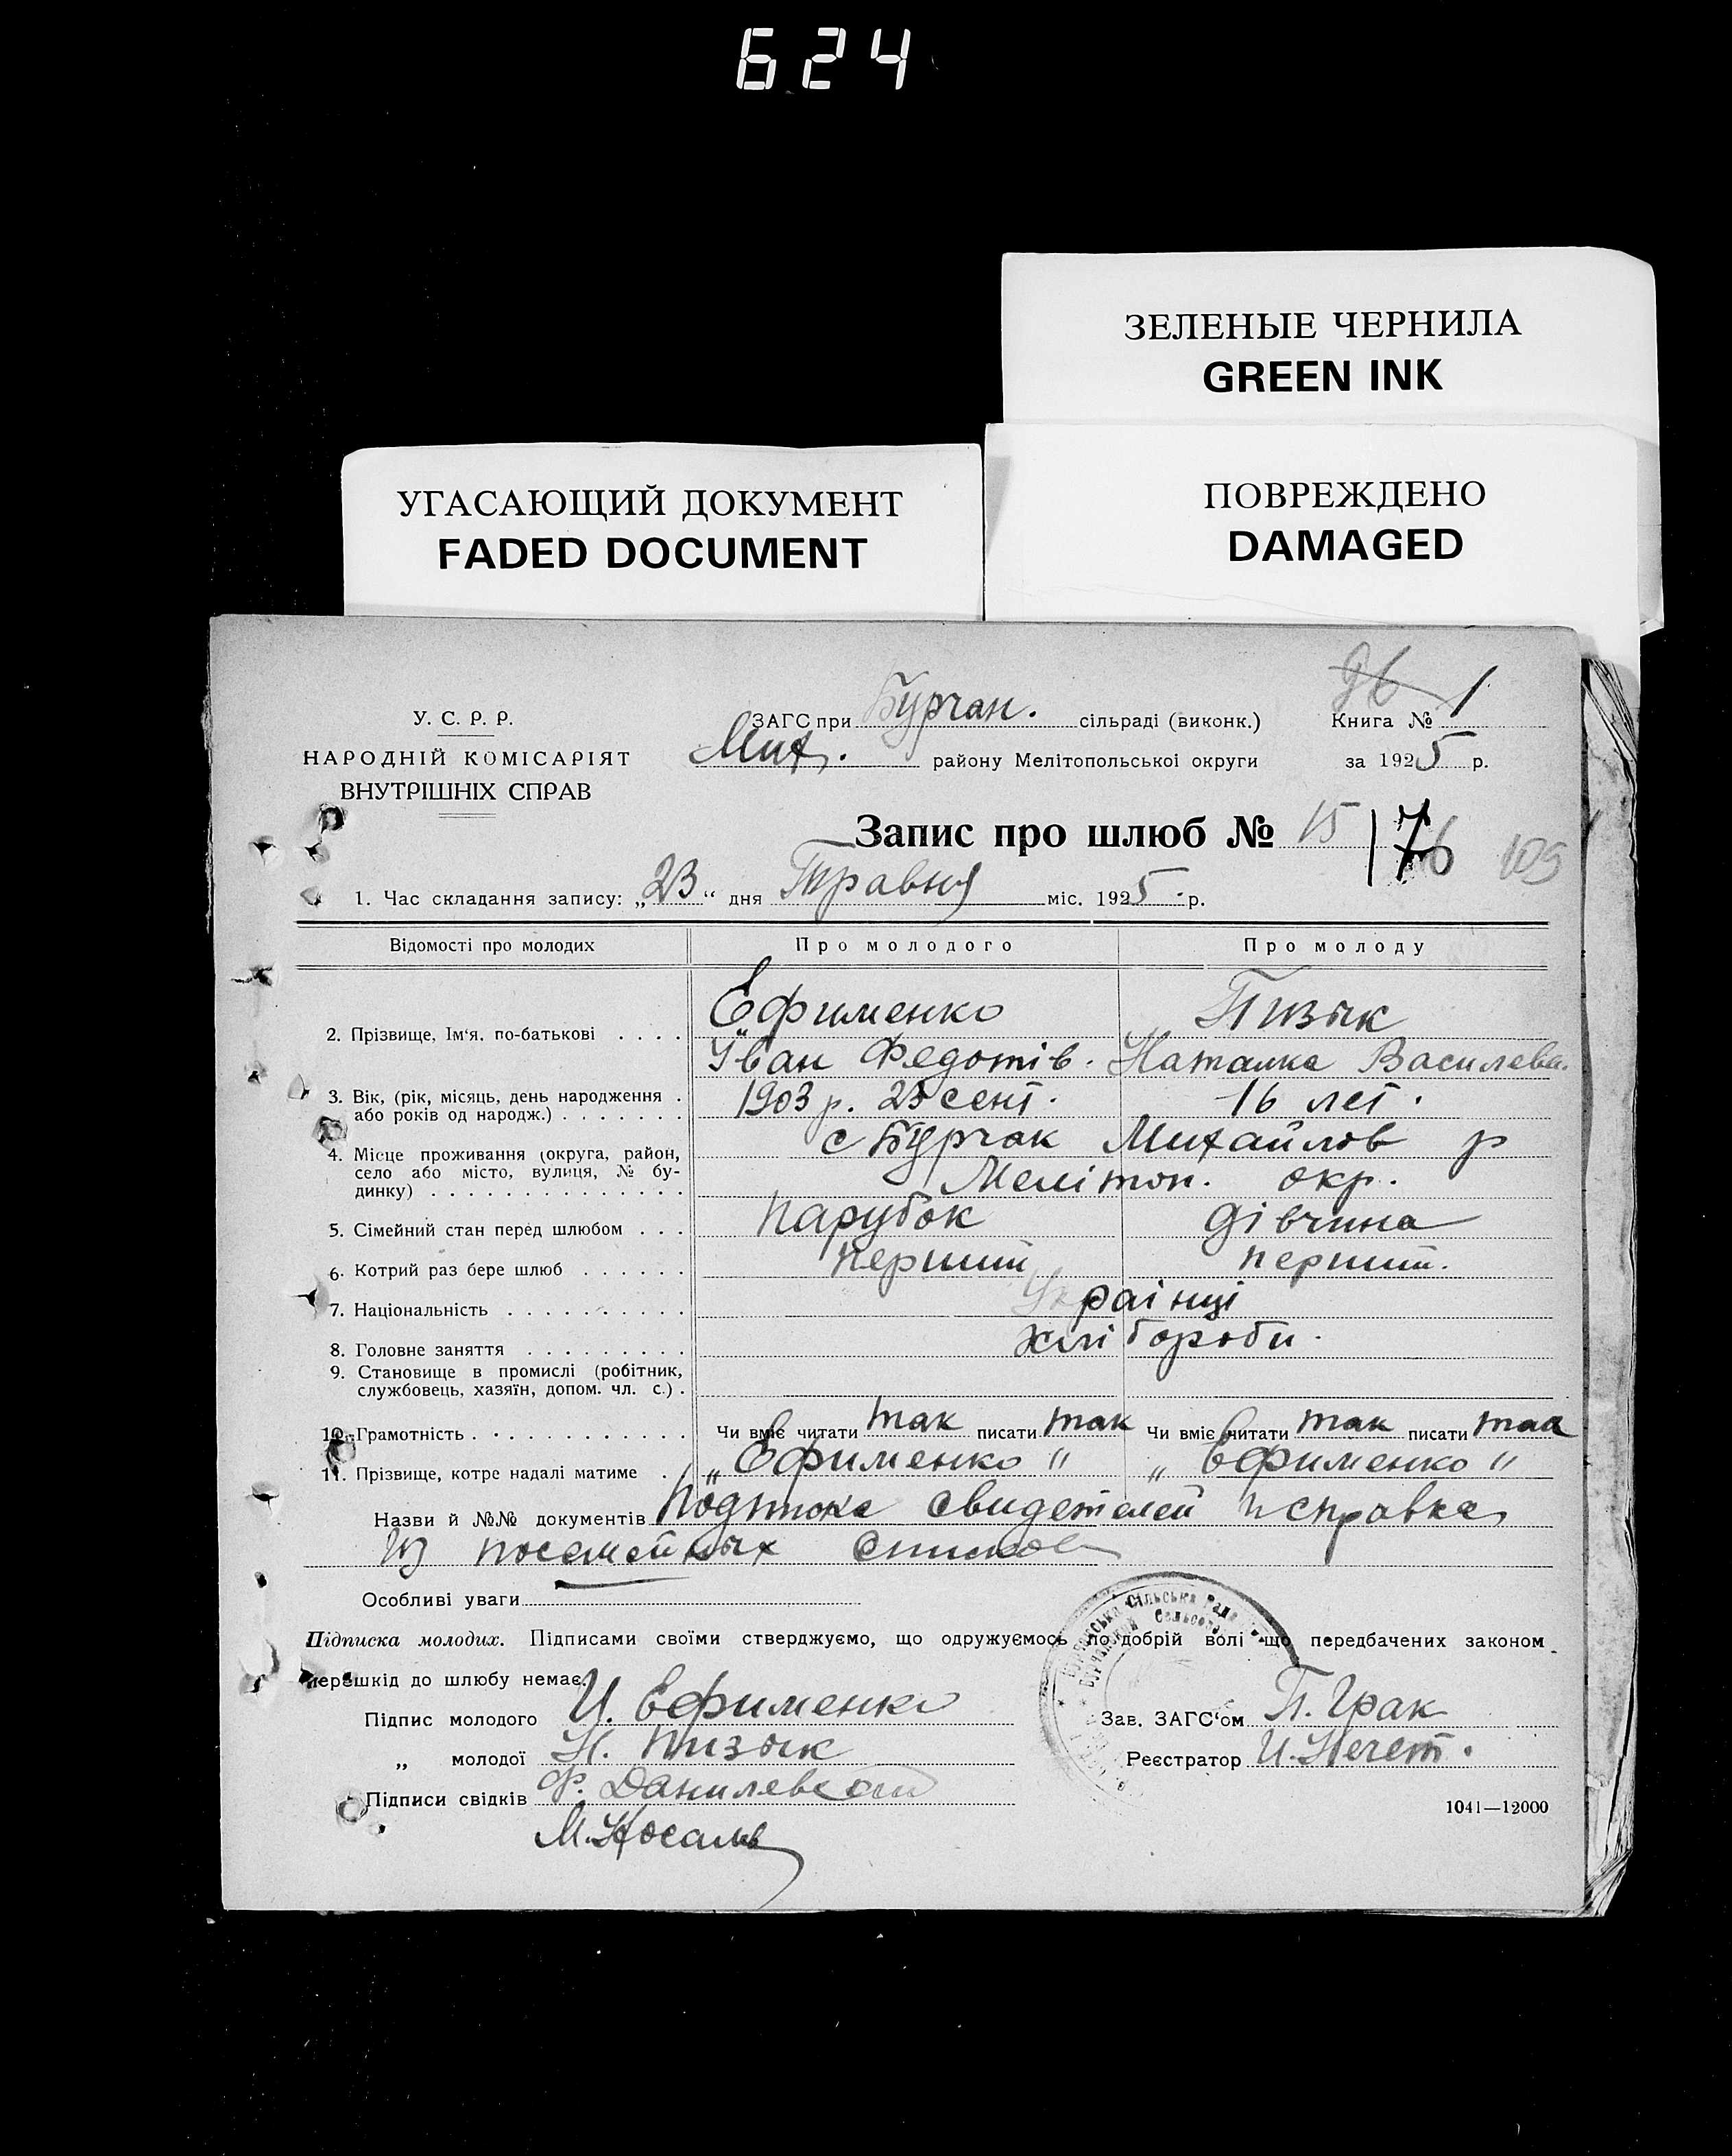 624
ЗЕЛЕНЫЕ ЧЕРНИЛА
GREEN INK
УГАСАЮЩИЙ ДОКУМЕНТ
FADED DOCUMENT
ПОВРЕЖДЕНО
DAMAGED
У. С. Р. Р.
НАРОДНІЙ КОМІСАРІЯТ
ВНУТРІШНІХ СПРАВ
ЗАГС при Бурчан. сільраді (виконк.)
Мих. району Мелітопольської округи
96 Книга № 1
за 1925 р.
Запис про шлюб № 15 176 109
1. Час складання запису: „23“ дня Травня міс. 1925 р.
Відомості про молодих Про молодого Про молоду
2. Прізвище, Ім‘я, по-батькові . . . . Ефименко Пизык
Іван Федотів. Наталка Василева.
3. Вік, (рік, місяць, день народження . або років од народж.) . . . . . . . 1903 р. 23 сент. 16 лет.
4. Місце проживання (округа, район, село або місто, вулиця, № будинку) . . . с Бурчак Михайлов р
Меліtоп. окр.
5. Сімейний стан перед шлюбом . . . Парубок дівчина
6. Котрий раз бере шлюб . . . . . . перший перший.
7. Національність . . . . . . . . . . Українці
8. Головне заняття . . . . . . . . . хліbороби.
9. Становище в промислі (робітник, службовець, хазяїн, допом. чл. с.) .
10. Грамотність . . . . . . . . . . . . Чи вміє читати так писати так Чи вміє читати так писати так
11. Прізвище, котре надалі матиме . „Ефименко“ „Ефименко“
Назви й №№ документів Подписка свидетелей и справка
из посемейных списков
Особливі уваги
Підписка молодих. Підписами своїми стверджуємо, що одружуємось по добрій волі що передбачених законом
перешкід до шлюбу немає.
Підпис молодого И. Ефименко
„ молодої Н. Пизык
Підписи свідків Ф. Данилевский
Сільська Рада
Зав. ЗАГС‘ом П. Грак
Реєстратор
1041—12000